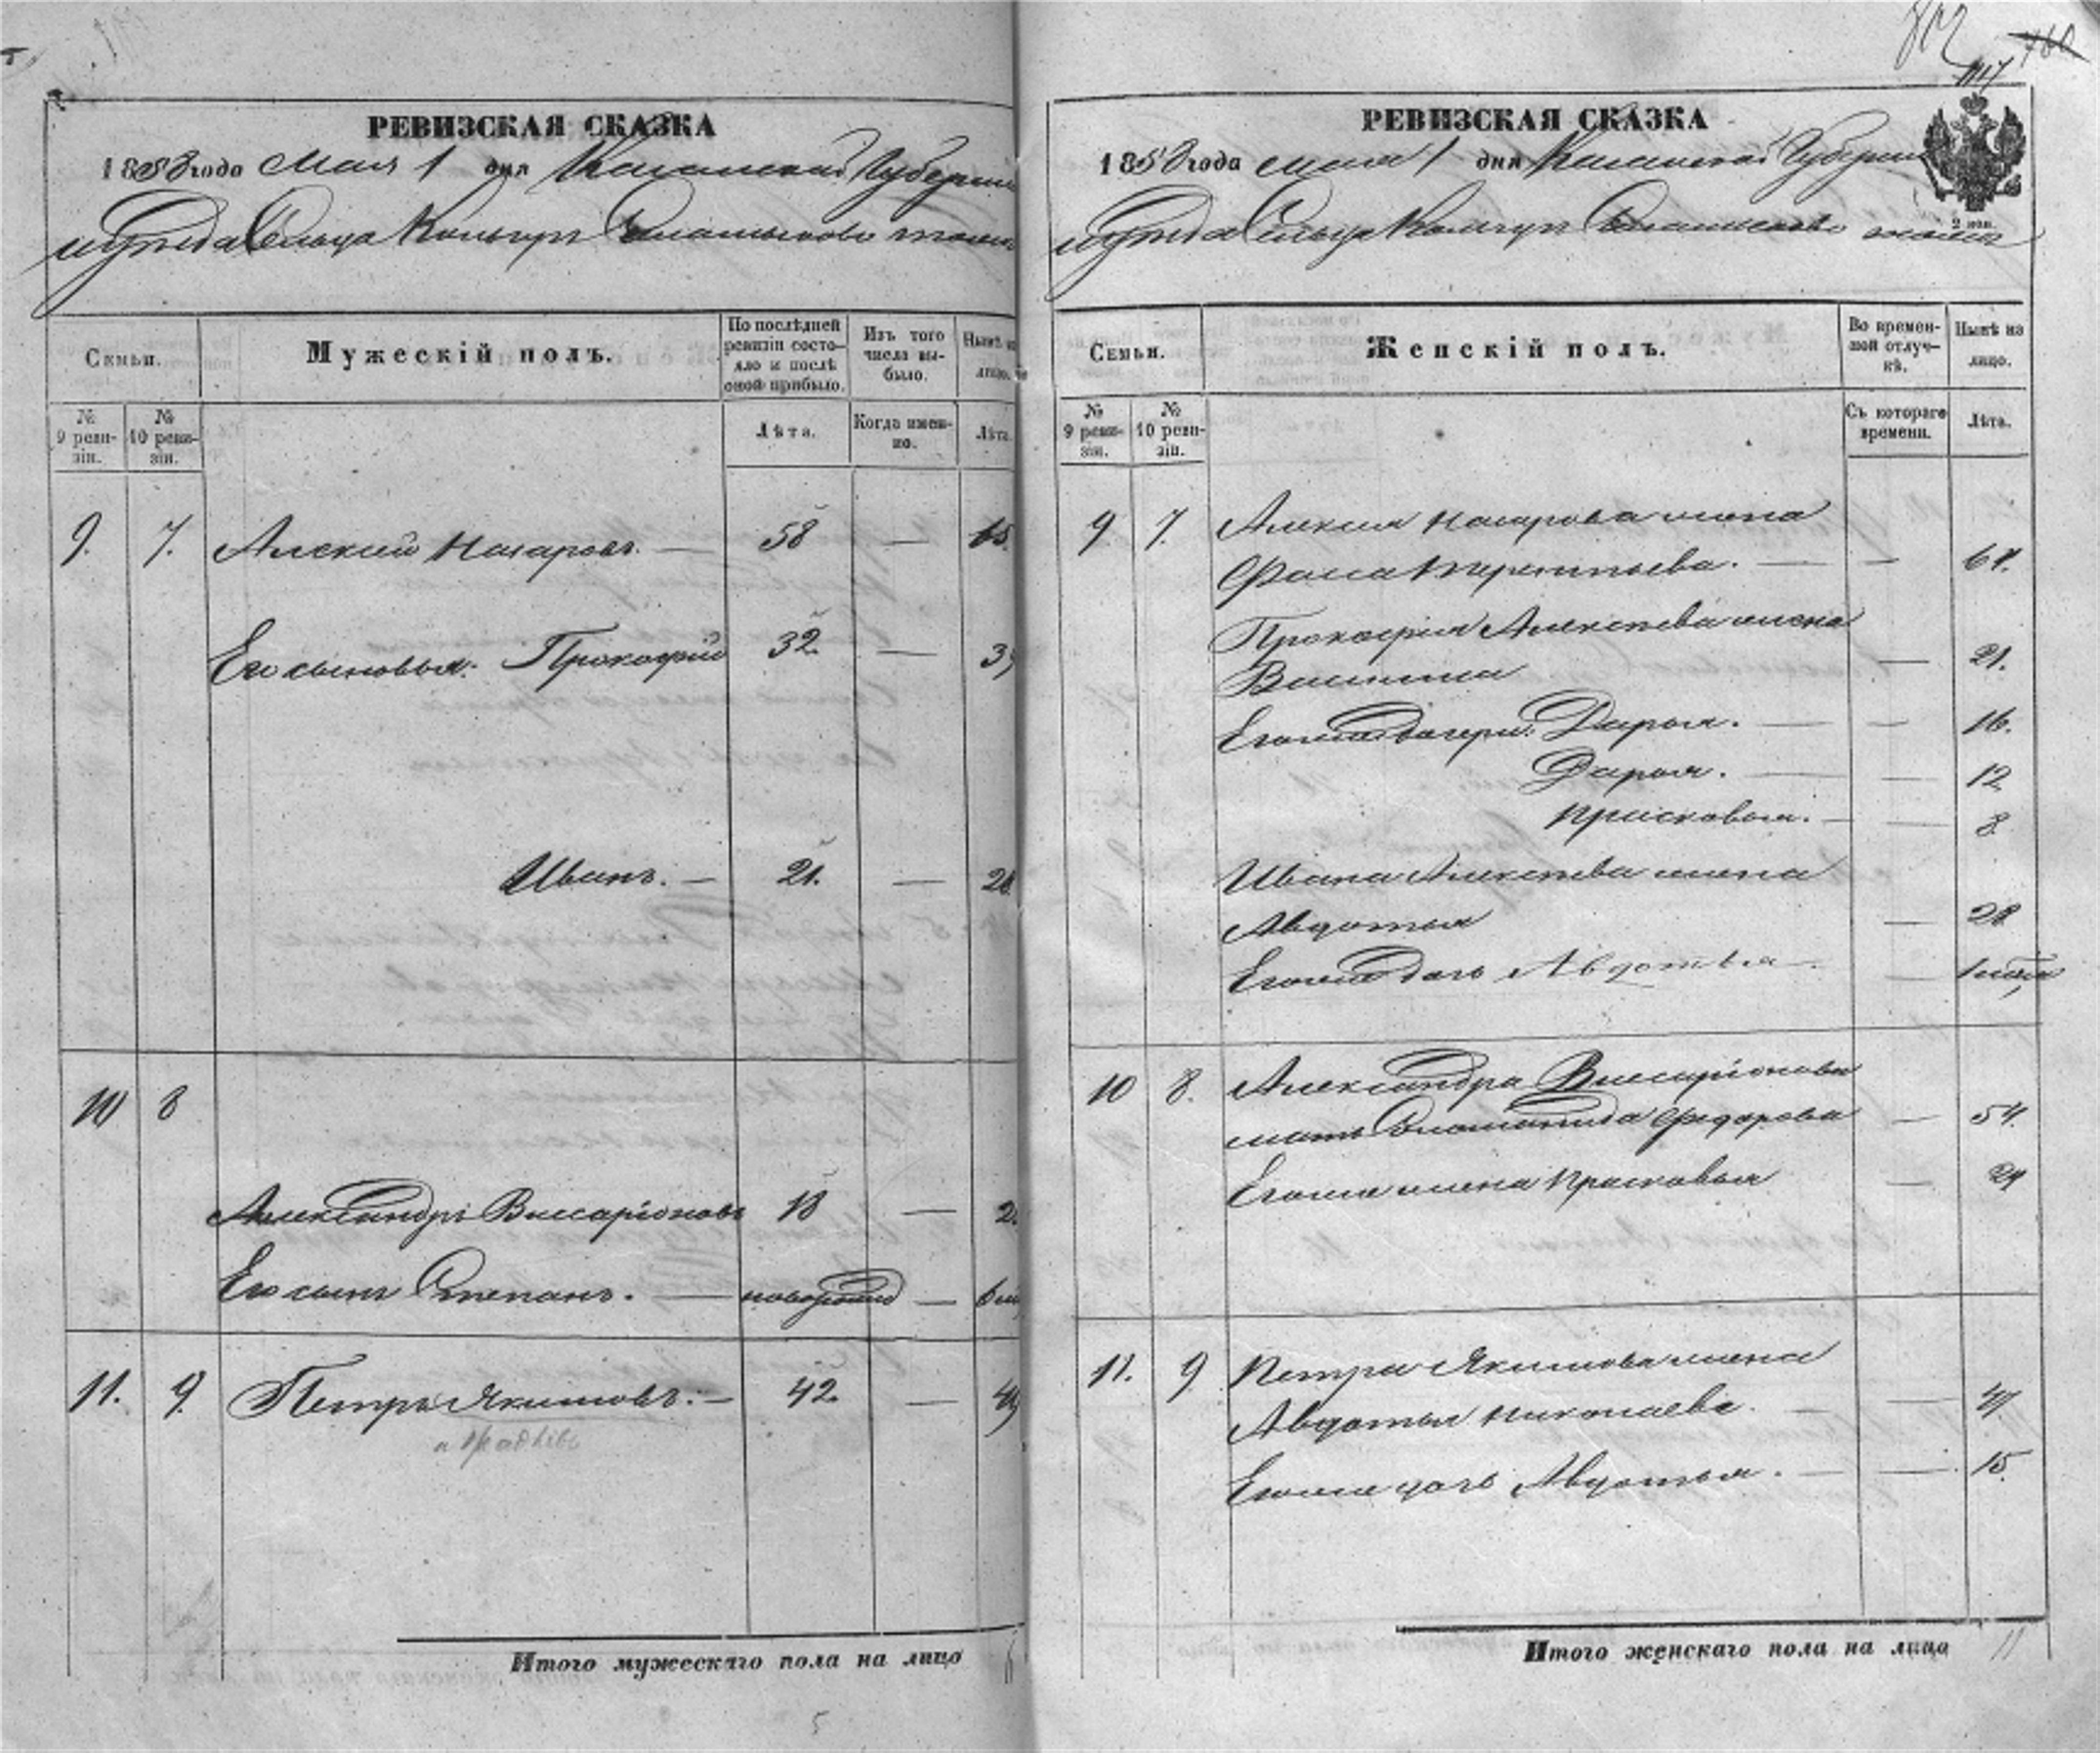 РЕВИЗСКАЯ СКАЗКА
1858 года Мая 1 дня Казанской Губерніи
и уѣзда Сельца
Семьи.
Мужескій полъ.
По послѣдней ревизіи состояло и послѣ оной прибыло.
Изъ того числа выбыло.
Нынѣ на лицо.
№ 9 ревизіи.
№ 10 ревизіи.
Лѣта.
Когда именно.
Лѣта.
9. 7. Алексѣй Назаровъ. — 58 —
Его сыновья: Прокофій 32. —
Иванъ. — 21. — 28
10 8
Александръ Виссаріоновъ 18 —
Его сынъ Степанъ. —
11. 9. Петръ Якимовъ. — 42. — 49
Итого мужескаго пола на лицо
5
РЕВИЗСКАЯ СКАЗКА
1858 года мая 1 дня Казанской Губерніи
и уѣзда Сельца
2 коп.
Семьи.
Женскій полъ.
Во временной отлучкѣ.
Нынѣ на лицо.
№ 9 ревизіи.
№ 10 ревизіи.
Съ котораго времени.
Лѣта.
9 7. Алексѣя Назарова жена
Терентьева. — —
Прокофія Алексѣева жена
— 21.
Его дочери: Дарья. — — 16.
Дарья. — — 12
Прасковья. — — 8
Ивана Алексѣева жена
Авдотья — 28
Его дочь Авдотья —
10 8. Александра Виссаріонова
мать Федорова — 54.
Егоже жена Прасковья —
11. 9 Петра Якимова жена
Авдотья Николаева. — —
Егоже дочь Авдотья. — — 15.
Итого женскаго пола на лицо 11